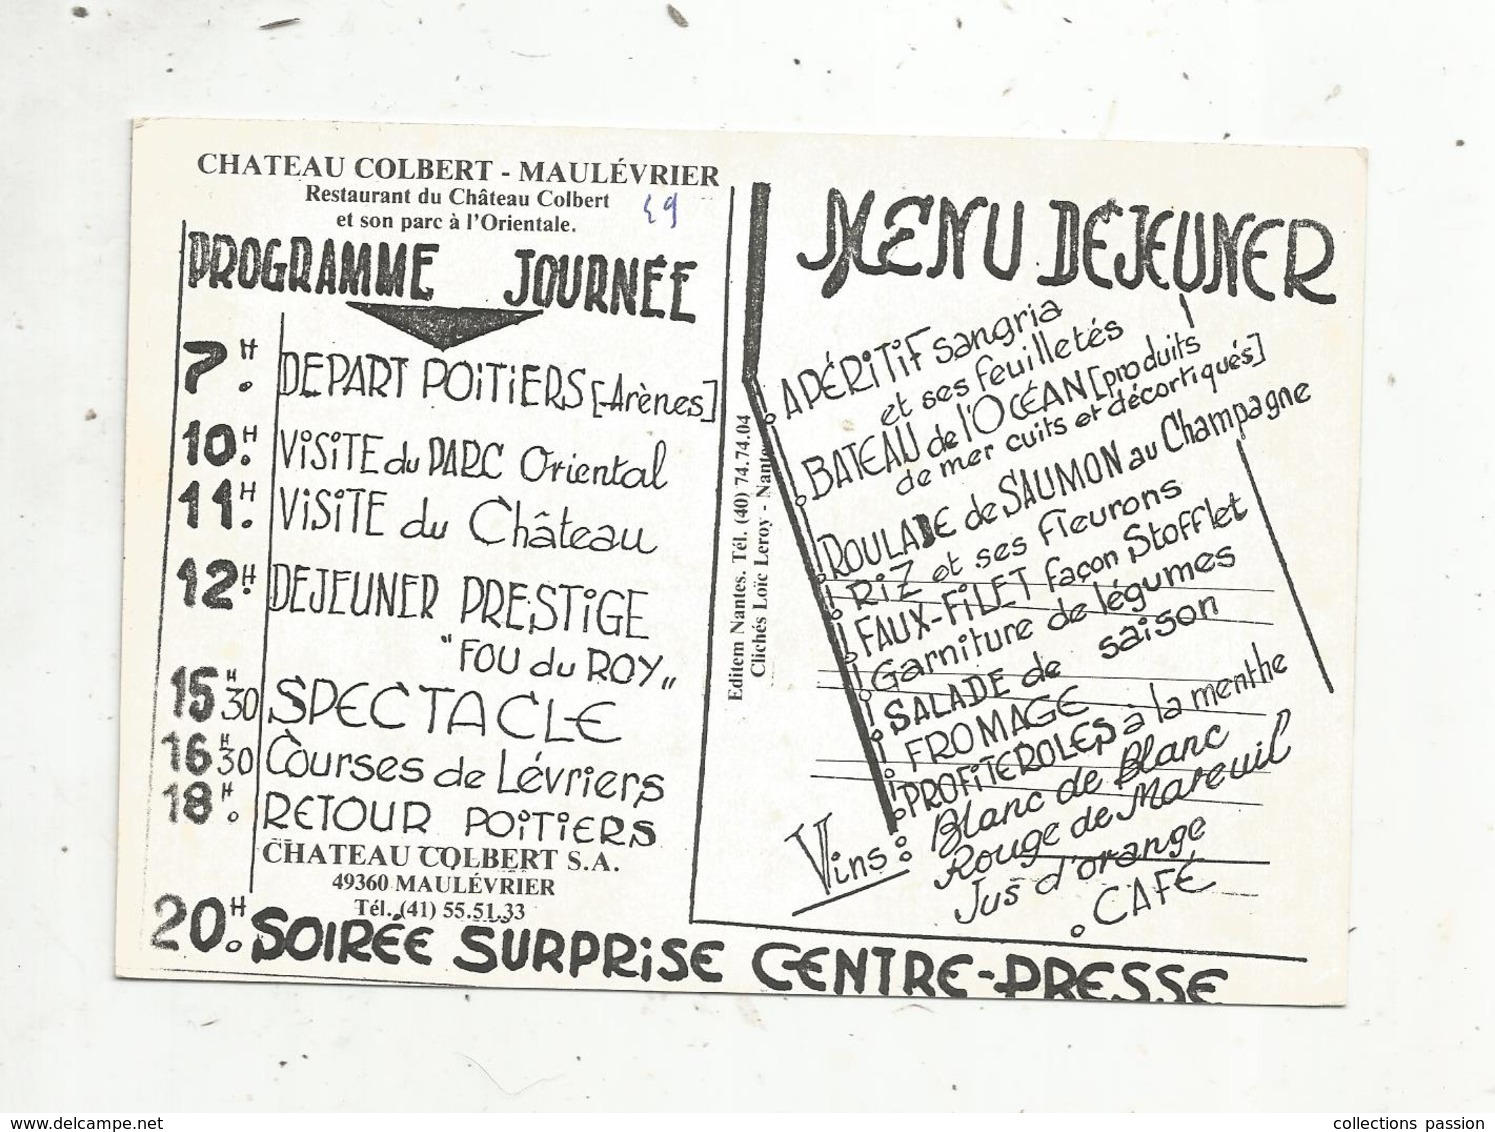 CHATEAU COLBERT - MAULÉVRIER
Restaurant du Château Colbert
et son parc à l'Orientale.
49
PROGRAMME JOURNÉE
7H. DEPART POITIERS [Arènes]
10H. VISITE du PARC Oriental
11H. VISITE du Château
12H. DEJEUNER PRESTIGE
"FOU du ROY"
15H30 SPECTACLE
16H30 Courses de Lévriers
18H. RETOUR POITIERS
CHATEAU COLBERT S.A.
49360 MAULÉVRIER
Tél. (41) 55.51.33
20H. SOIRÉE SURPRISE CENTRE-PRESSE
Editem Nantes. Tél. (40) 74.74.04
Clichés Loïc Leroy - Nantes
MENU DEJEUNER
APÉRITIF sangria
et ses feuilletés
BATEAU de l'OCÉAN [produits
de mer cuits et décortiqués]
ROULADE de SAUMON au Champagne
RIZ et ses fleurons
FAUX-FILET façon Stofflet
Garniture de légumes
SALADE de saison
FROMAGE
PROFITEROLES à la menthe
Vins: Blanc de Blanc
Rouge de Mareuil
Jus d'orange
CAFÉ
collections passion